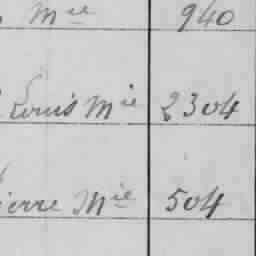 Mie 940
Louis Mie 2304
ierre Mie 504